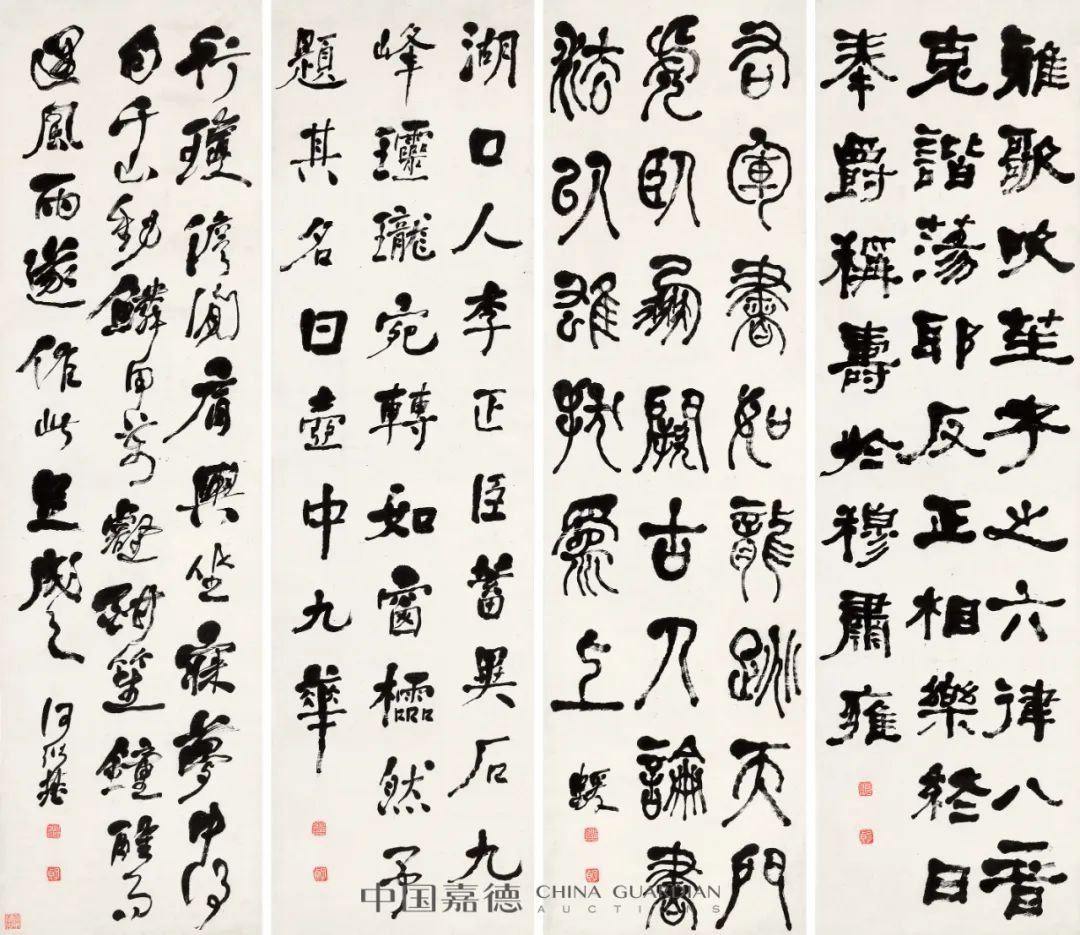 雅歌吹笙考之六律八音
克諧蕩耶反正相樂終日
奉爵稱壽於穆肅雍
右軍書如龍跳天門
虎臥鳳闕古人論書
法以雄爲上
蝯
湖口人李正臣蓄異石九
峰玲瓏宛轉如窗櫺然予
題其名曰壺中九華
行瓊儋間肩輿坐寐夢中得
句千山動鱗甲萬壑酣笙鐘醒而
遇風雨遂作此足成之
何紹基
中国嘉德 CHINA GUARDIAN
AUCTIONS